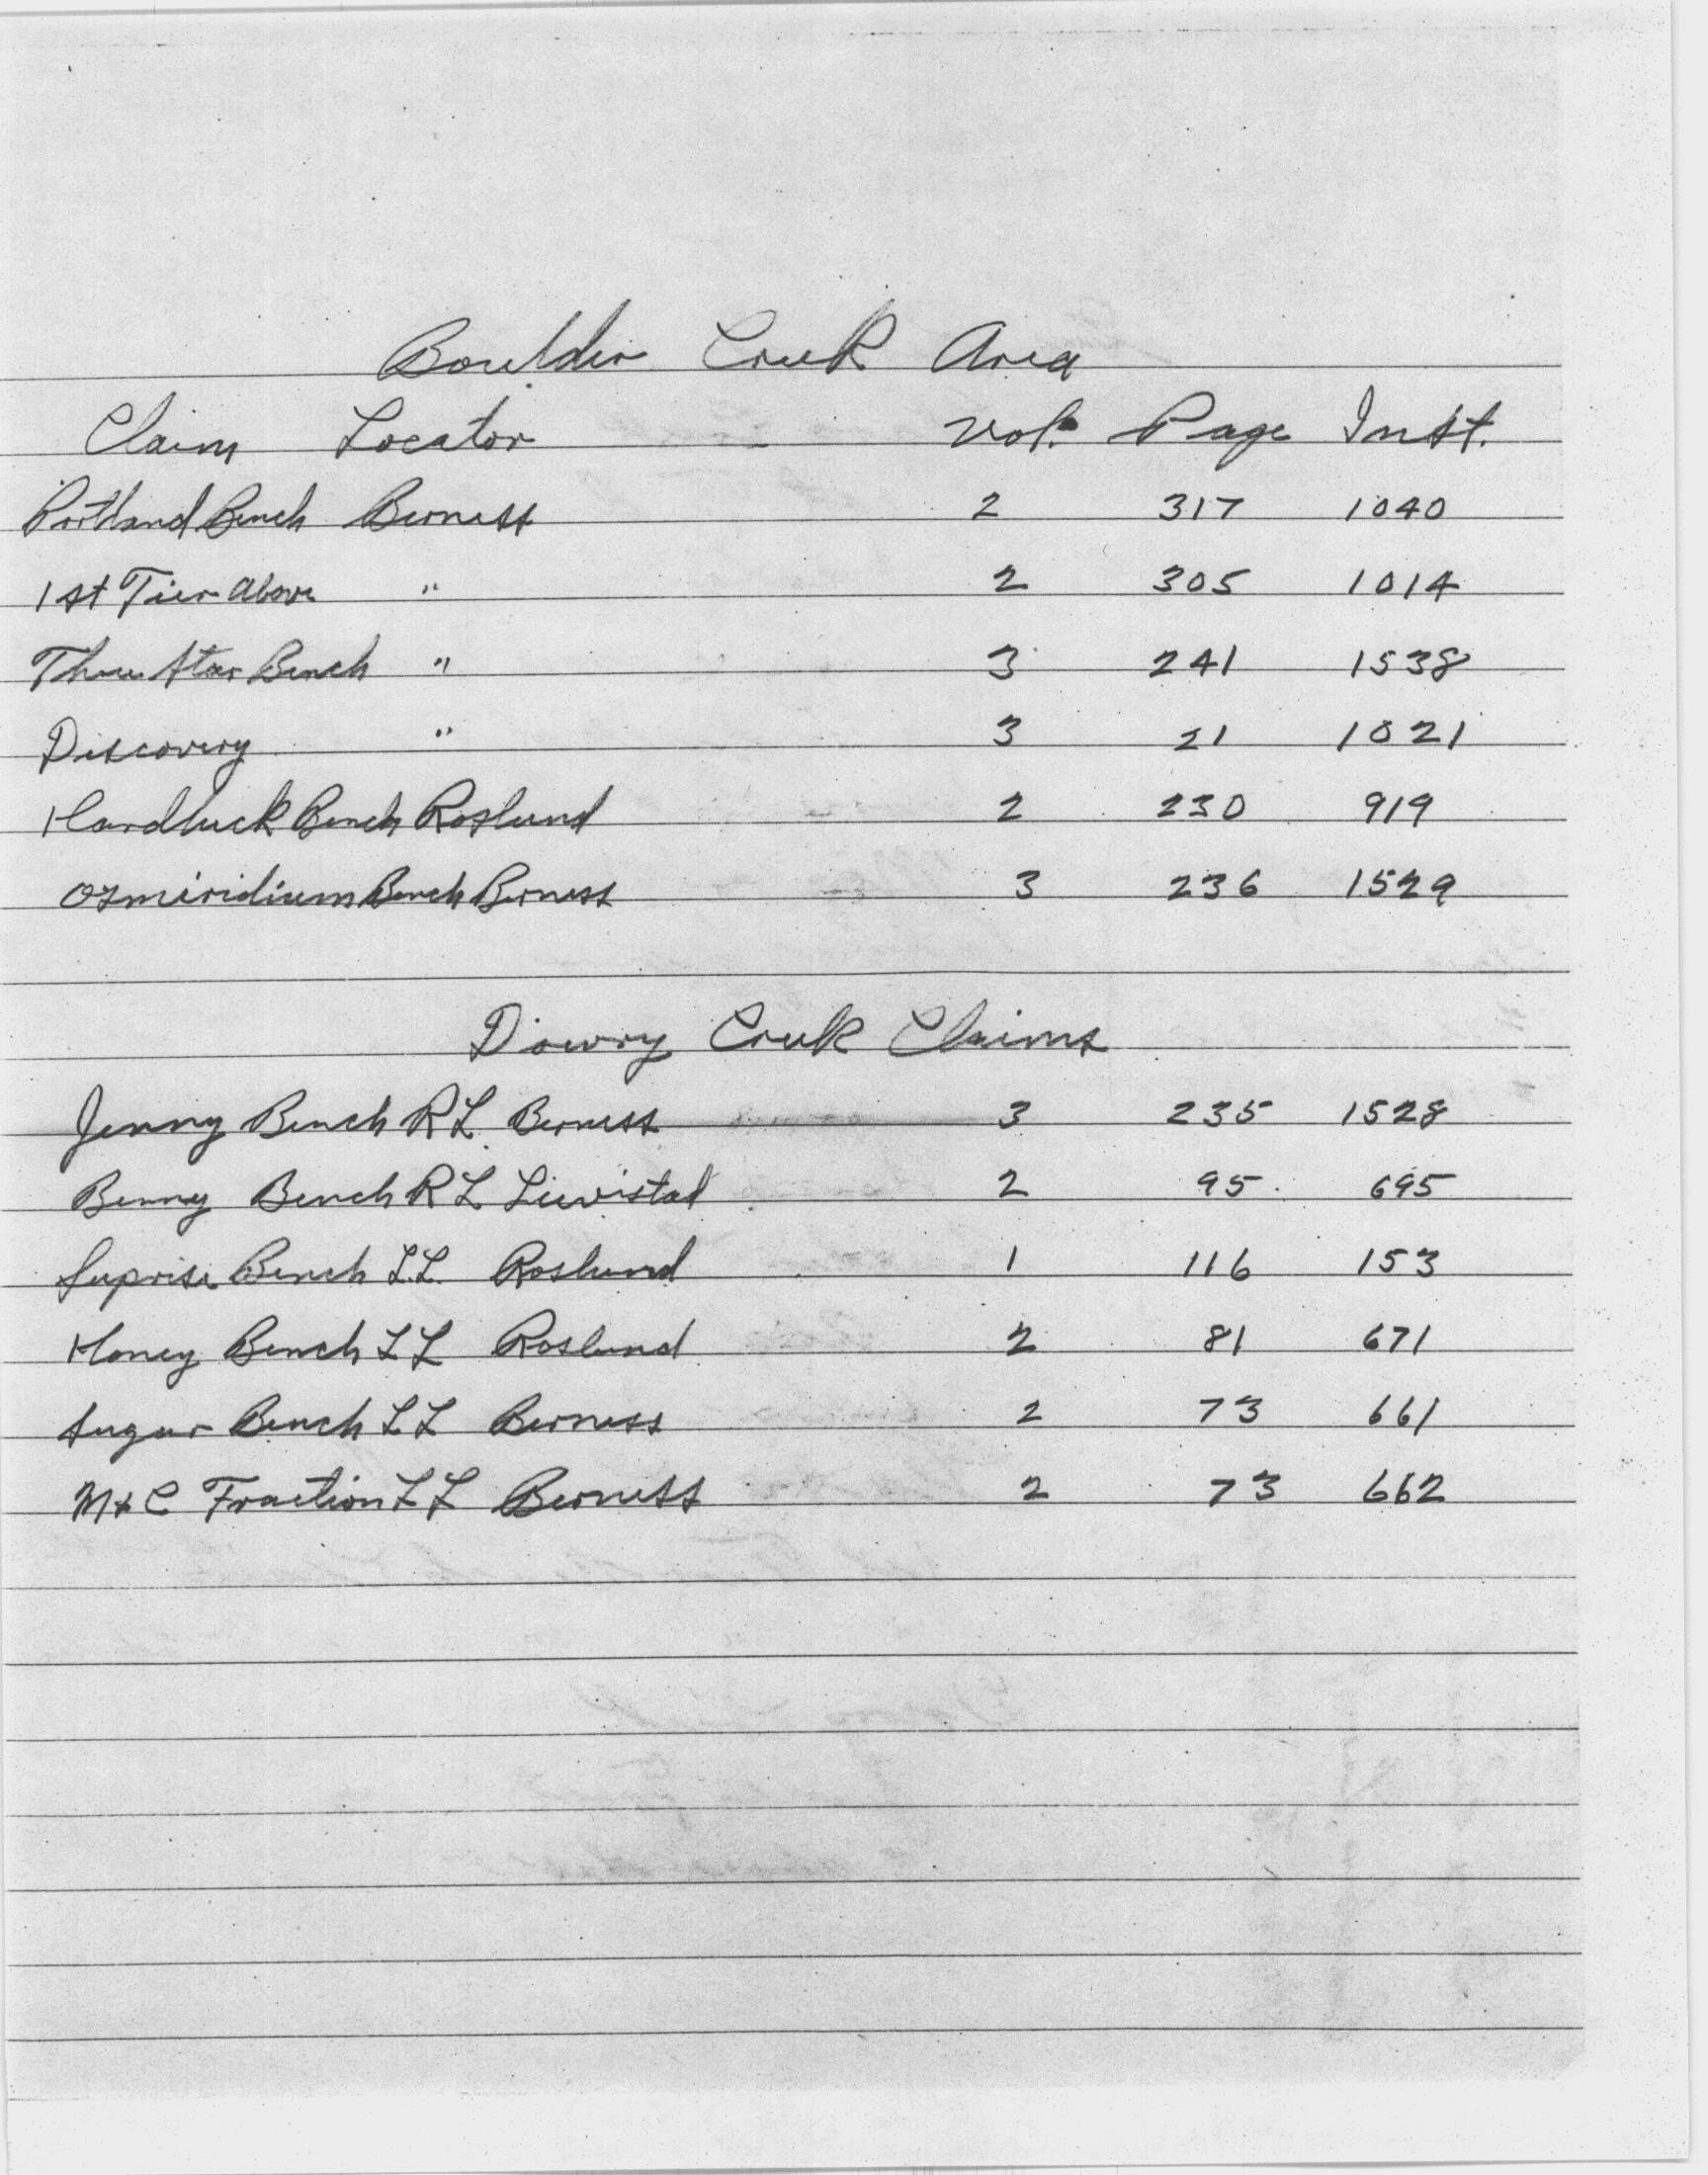 Boulder Creek Area
Claim Locator Vol. Page Inst.
Portland Bench Berness 2 317 1040
1st Tier Above " 2 305 1014
Three Star Bench " 3 241 1538
Discovery " 3 21 1021
Hardluck Bench Roslund 2 230 919
Osmiridium Bench Berness 3 236 1529
Dowry Creek Claims
Jenny Bench RL Berness 3 235 1528
Benny Bench RL Liewistad 2 95 695
Suprise Bench L.L. Roslund 1 116 153
Honey Bench LL Roslund 2 81 671
Sugar Bench LL Berness 2 73 661
M+C Fraction LL Berness 2 73 662